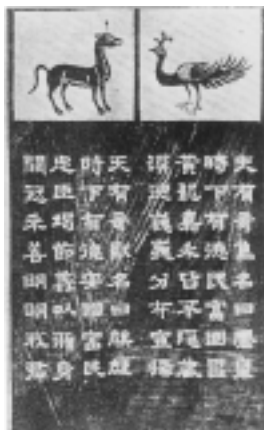 天有奇鳥名曰鳳皇
時下有德民富國昌
黃龍嘉禾皆不隱藏
漢德巍巍分布宣揚
天有奇獸名曰麒麟
時下有德安國富民
忠臣竭節義以脩身
善明明我君